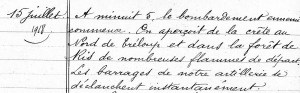 15 juillet
1918
A minuit 5, le bombardement ennemi
commence. On aperçoit de la crête au
Nord de Tréloup et dans la forêt de
Ris de nombreuses flammes de départ.
Les barrages de notre artillerie se
déclanchent instantanément.